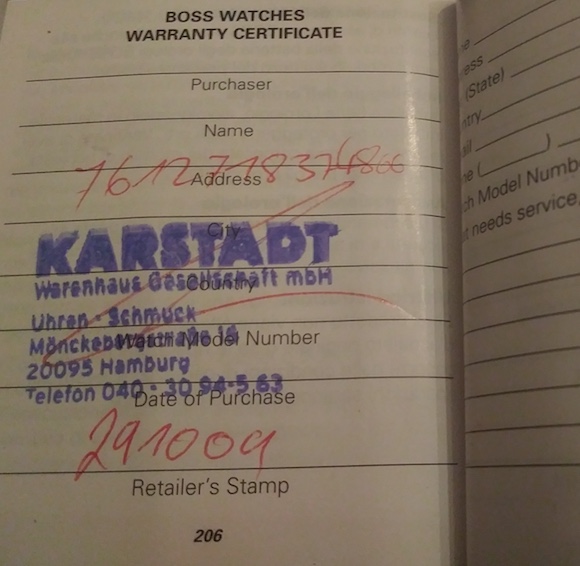 BOSS WATCHES
WARRANTY CERTIFICATE
Purchaser
Name
Address
City
KARSTADT
Warenhaus Gesellschaft mbH
Country
Uhren - Schmuck
Mönckebergstraße 16
Watch Model Number
20095 Hamburg
Telefon 040 - 30 94-5 63
Date of Purchase
291009
Retailer's Stamp
206
(State)
ch Model Numb
needs service,